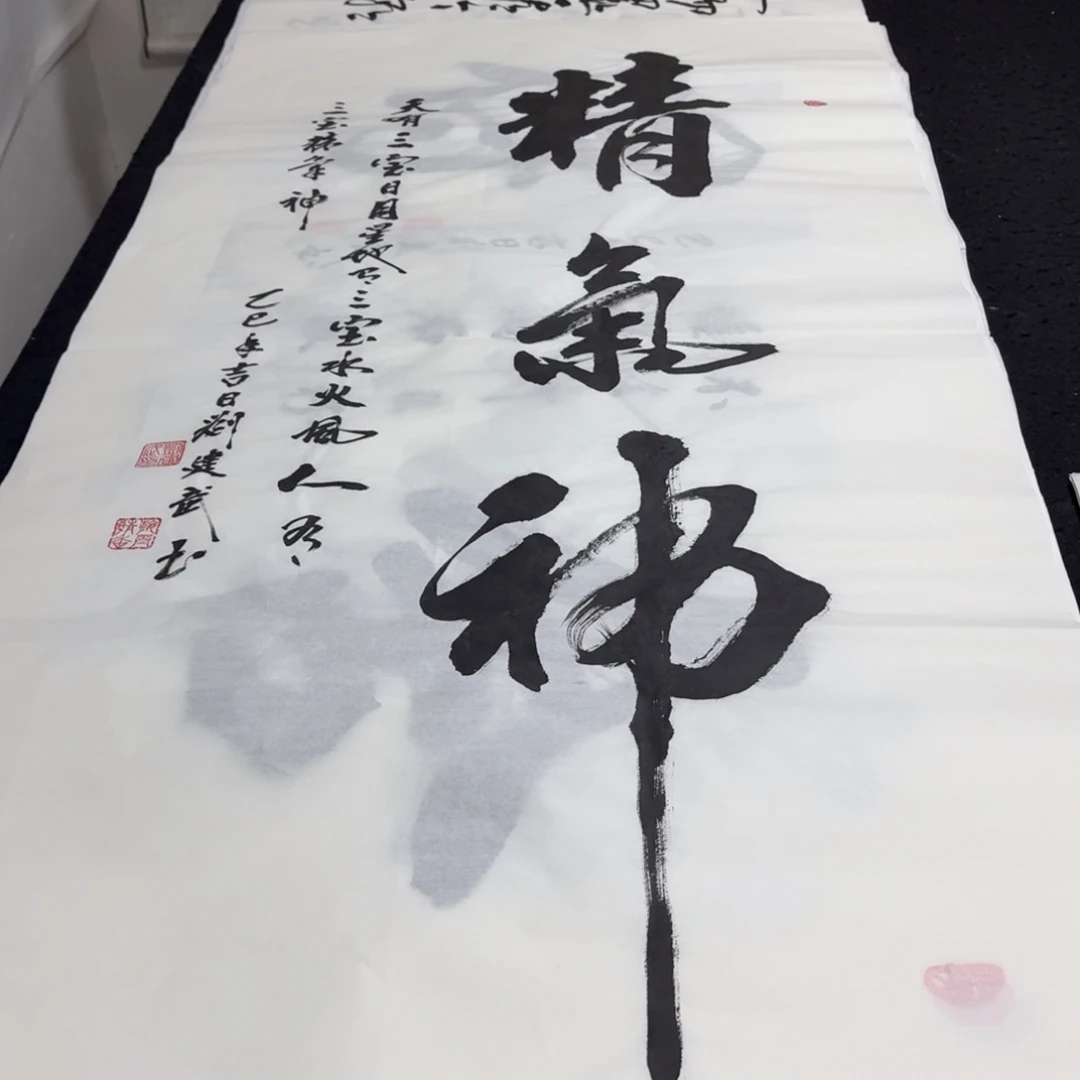 精氣神
天有三宝日月星地有三宝水火風人有
三宝精氣神
乙巳年吉日劉建武书